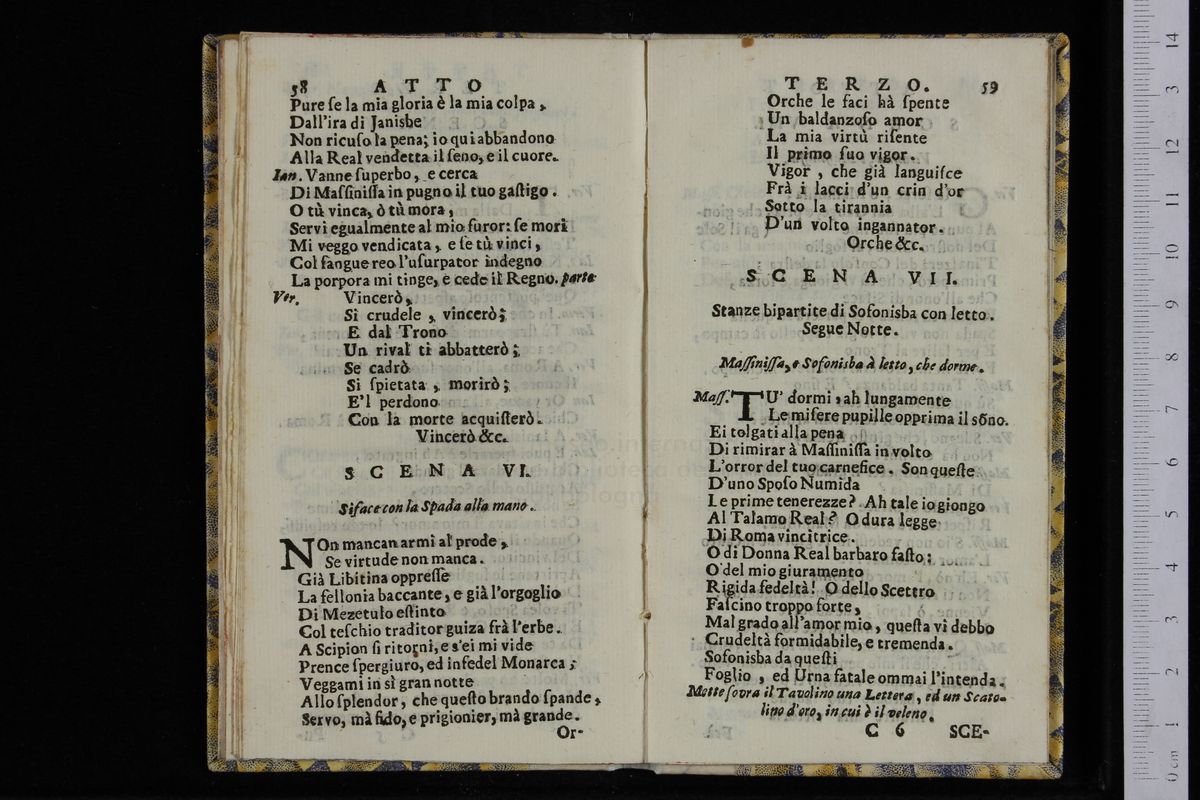 58 ATTO
Pure ſe la mia gloria è la mia colpa,
Dall'ira di Janisbe
Non ricuſo la pena; io quì abbandono
Alla Real vendetta il ſeno, e il cuore.
Ian. Vanne ſuperbo, e cerca
Di Maſſiniſſa in pugno il tuo gaſtigo.
O tù vinca, ò tù mora,
Servi egualmente al mio furor: ſe mori
Mi veggo vendicata, e ſe tù vinci,
Col ſangue reo l'uſurpator indegno
La porpora mi tinge, e cede il Regno. parte
Ver. Vincerò,
Si crudele, vincerò;
E dal Trono
Un rival ti abbatterò;
Se cadrò
Si ſpietata, morirò;
E'l perdono
Con la morte acquiſterò.
Vincerò &c.
SCENA VI.
Siface con la Spada alla mano.
NOn mancan armi al prode,
Se virtude non manca.
Già Libitina oppreſſe
La fellonia baccante, e già l'orgoglio
Di Mezetulo eſtinto
Col teſchio traditor guiza frà l'erbe.
A Scipion ſi ritorni, e s'ei mi vide
Prence ſpergiuro, ed infedel Monarca;
Veggami in sì gran notte
Allo ſplendor, che queſto brando ſpande,
Servo, mà fido, e prigionier, mà grande.
Or-
TERZO. 59
Orche le faci hà ſpente
Un baldanzoſo amor
La mia virtù riſente
Il primo ſuo vigor.
Vigor, che già languiſce
Frà i lacci d'un crin d'or
Sotto la tirannia
D'un volto ingannator.
Orche &c.
SCENA VII.
Stanze bipartite di Sofonisba con letto.
Segue Notte.
Maſſiniſſa, e Sofonisba à letto, che dorme.
Maſſ. TU' dormi, ah lungamente
Le miſere pupille opprima il sõno.
Ei tolgati alla pena
Di rimirar à Maſſiniſſa in volto
L'orror del tuo carnefice. Son queſte
D'uno Spoſo Numida
Le prime tenerezze? Ah tale io giongo
Al Talamo Real? O dura legge
Di Roma vincitrice.
O di Donna Real barbaro faſto;
O del mio giuramento
Rigida fedeltà! O dello Scettro
Faſcino troppo forte,
Mal grado all'amor mio, queſta vi debbo
Crudeltà formidabile, e tremenda.
Sofonisba da queſti
Foglio, ed Urna fatale ommai l'intenda.
Mette ſovra il Tavolino una Lettera, ed un Scato-
lino d'oro, in cui è il veleno.
C 6 SCE-